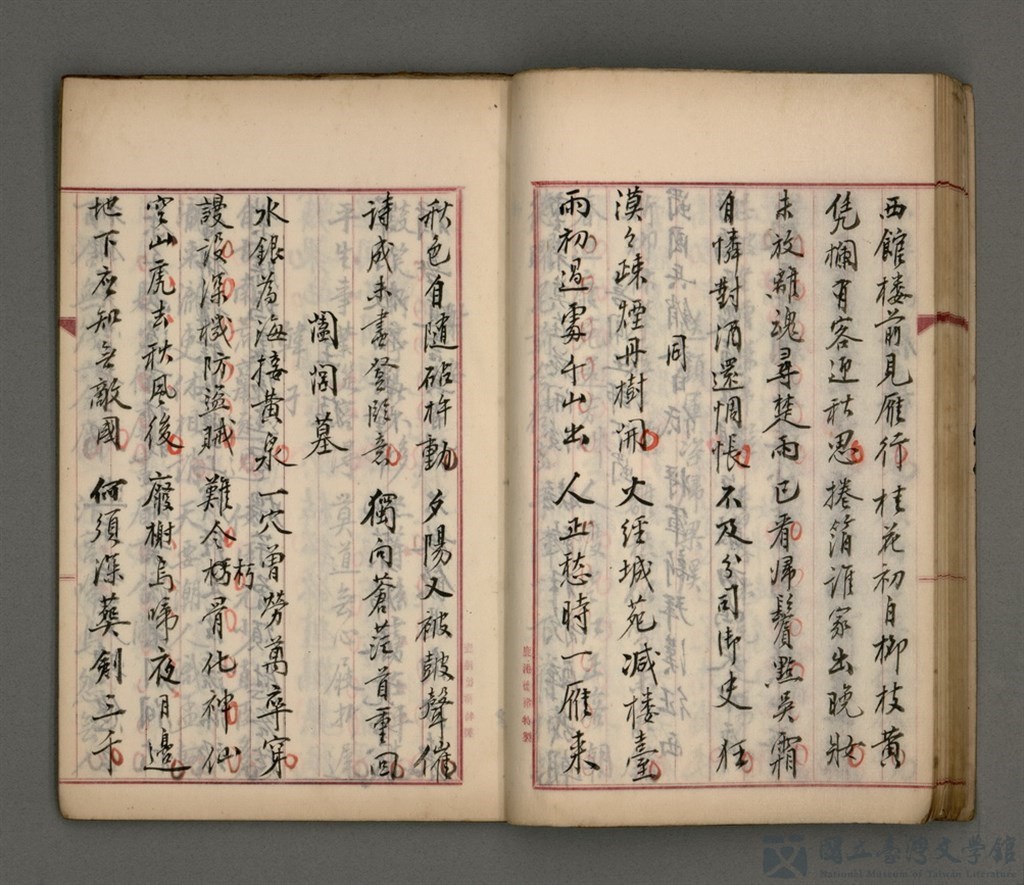 西館楼前見雁行桂花初自柳枝黄
凭欄有客迎秋思捲箔誰家出晚妝
未放離魂尋楚雨已看帰鬢點吳霜
自憐對酒還惆悵不及分司御史狂
同
漠々疎煙丹樹開火經城苑减楼臺
雨初過處千山出人正愁時一雁来
秋色自随砧杵動夕陽又被鼓聲催
詩成未盡登臨意獨向蒼茫首重回
闔閭墓
水銀為海接黄泉一穴曾勞萬卒穿
謾設深機防盜賊難令朽骨化神仙
朽
空山虎去秋風後廢榭烏啼夜月邊
地下应知無敵國何須深葬劍三千
國立臺灣文學館
National Museum of Taiwan Literature